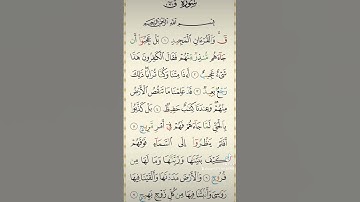 سُورَةُ ق
بِسْمِ ٱللَّهِ ٱلرَّحْمَٰنِ ٱلرَّحِيمِ
قٓ ۚ وَٱلْقُرْءَانِ ٱلْمَجِيدِ ١ بَلْ عَجِبُوٓا۟ أَن
جَآءَهُم مُّنذِرٌ مِّنْهُمْ فَقَالَ ٱلْكَٰفِرُونَ هَٰذَا
شَىْءٌ عَجِيبٌ ٢ أَءِذَا مِتْنَا وَكُنَّا تُرَابًا ۖ ذَٰلِكَ
رَجْعٌۢ بَعِيدٌ ٣ قَدْ عَلِمْنَا مَا تَنقُصُ ٱلْأَرْضُ
مِنْهُمْ ۖ وَعِندَنَا كِتَٰبٌ حَفِيظٌۢ ٤ بَلْ كَذَّبُوا۟
بِٱلْحَقِّ لَمَّا جَآءَهُمْ فَهُمْ فِىٓ أَمْرٍ مَّرِيجٍ ٥
أَفَلَمْ يَنظُرُوٓا۟ إِلَى ٱلسَّمَآءِ فَوْقَهُمْ
كَيْفَ بَنَيْنَٰهَا وَزَيَّنَّٰهَا وَمَا لَهَا مِن
فُرُوجٍ ٦ وَٱلْأَرْضَ مَدَدْنَٰهَا وَأَلْقَيْنَا فِيهَا
رَوَٰسِىَ وَأَنۢبَتْنَا فِيهَا مِن كُلِّ زَوْجٍۭ بَهِيجٍ ٧